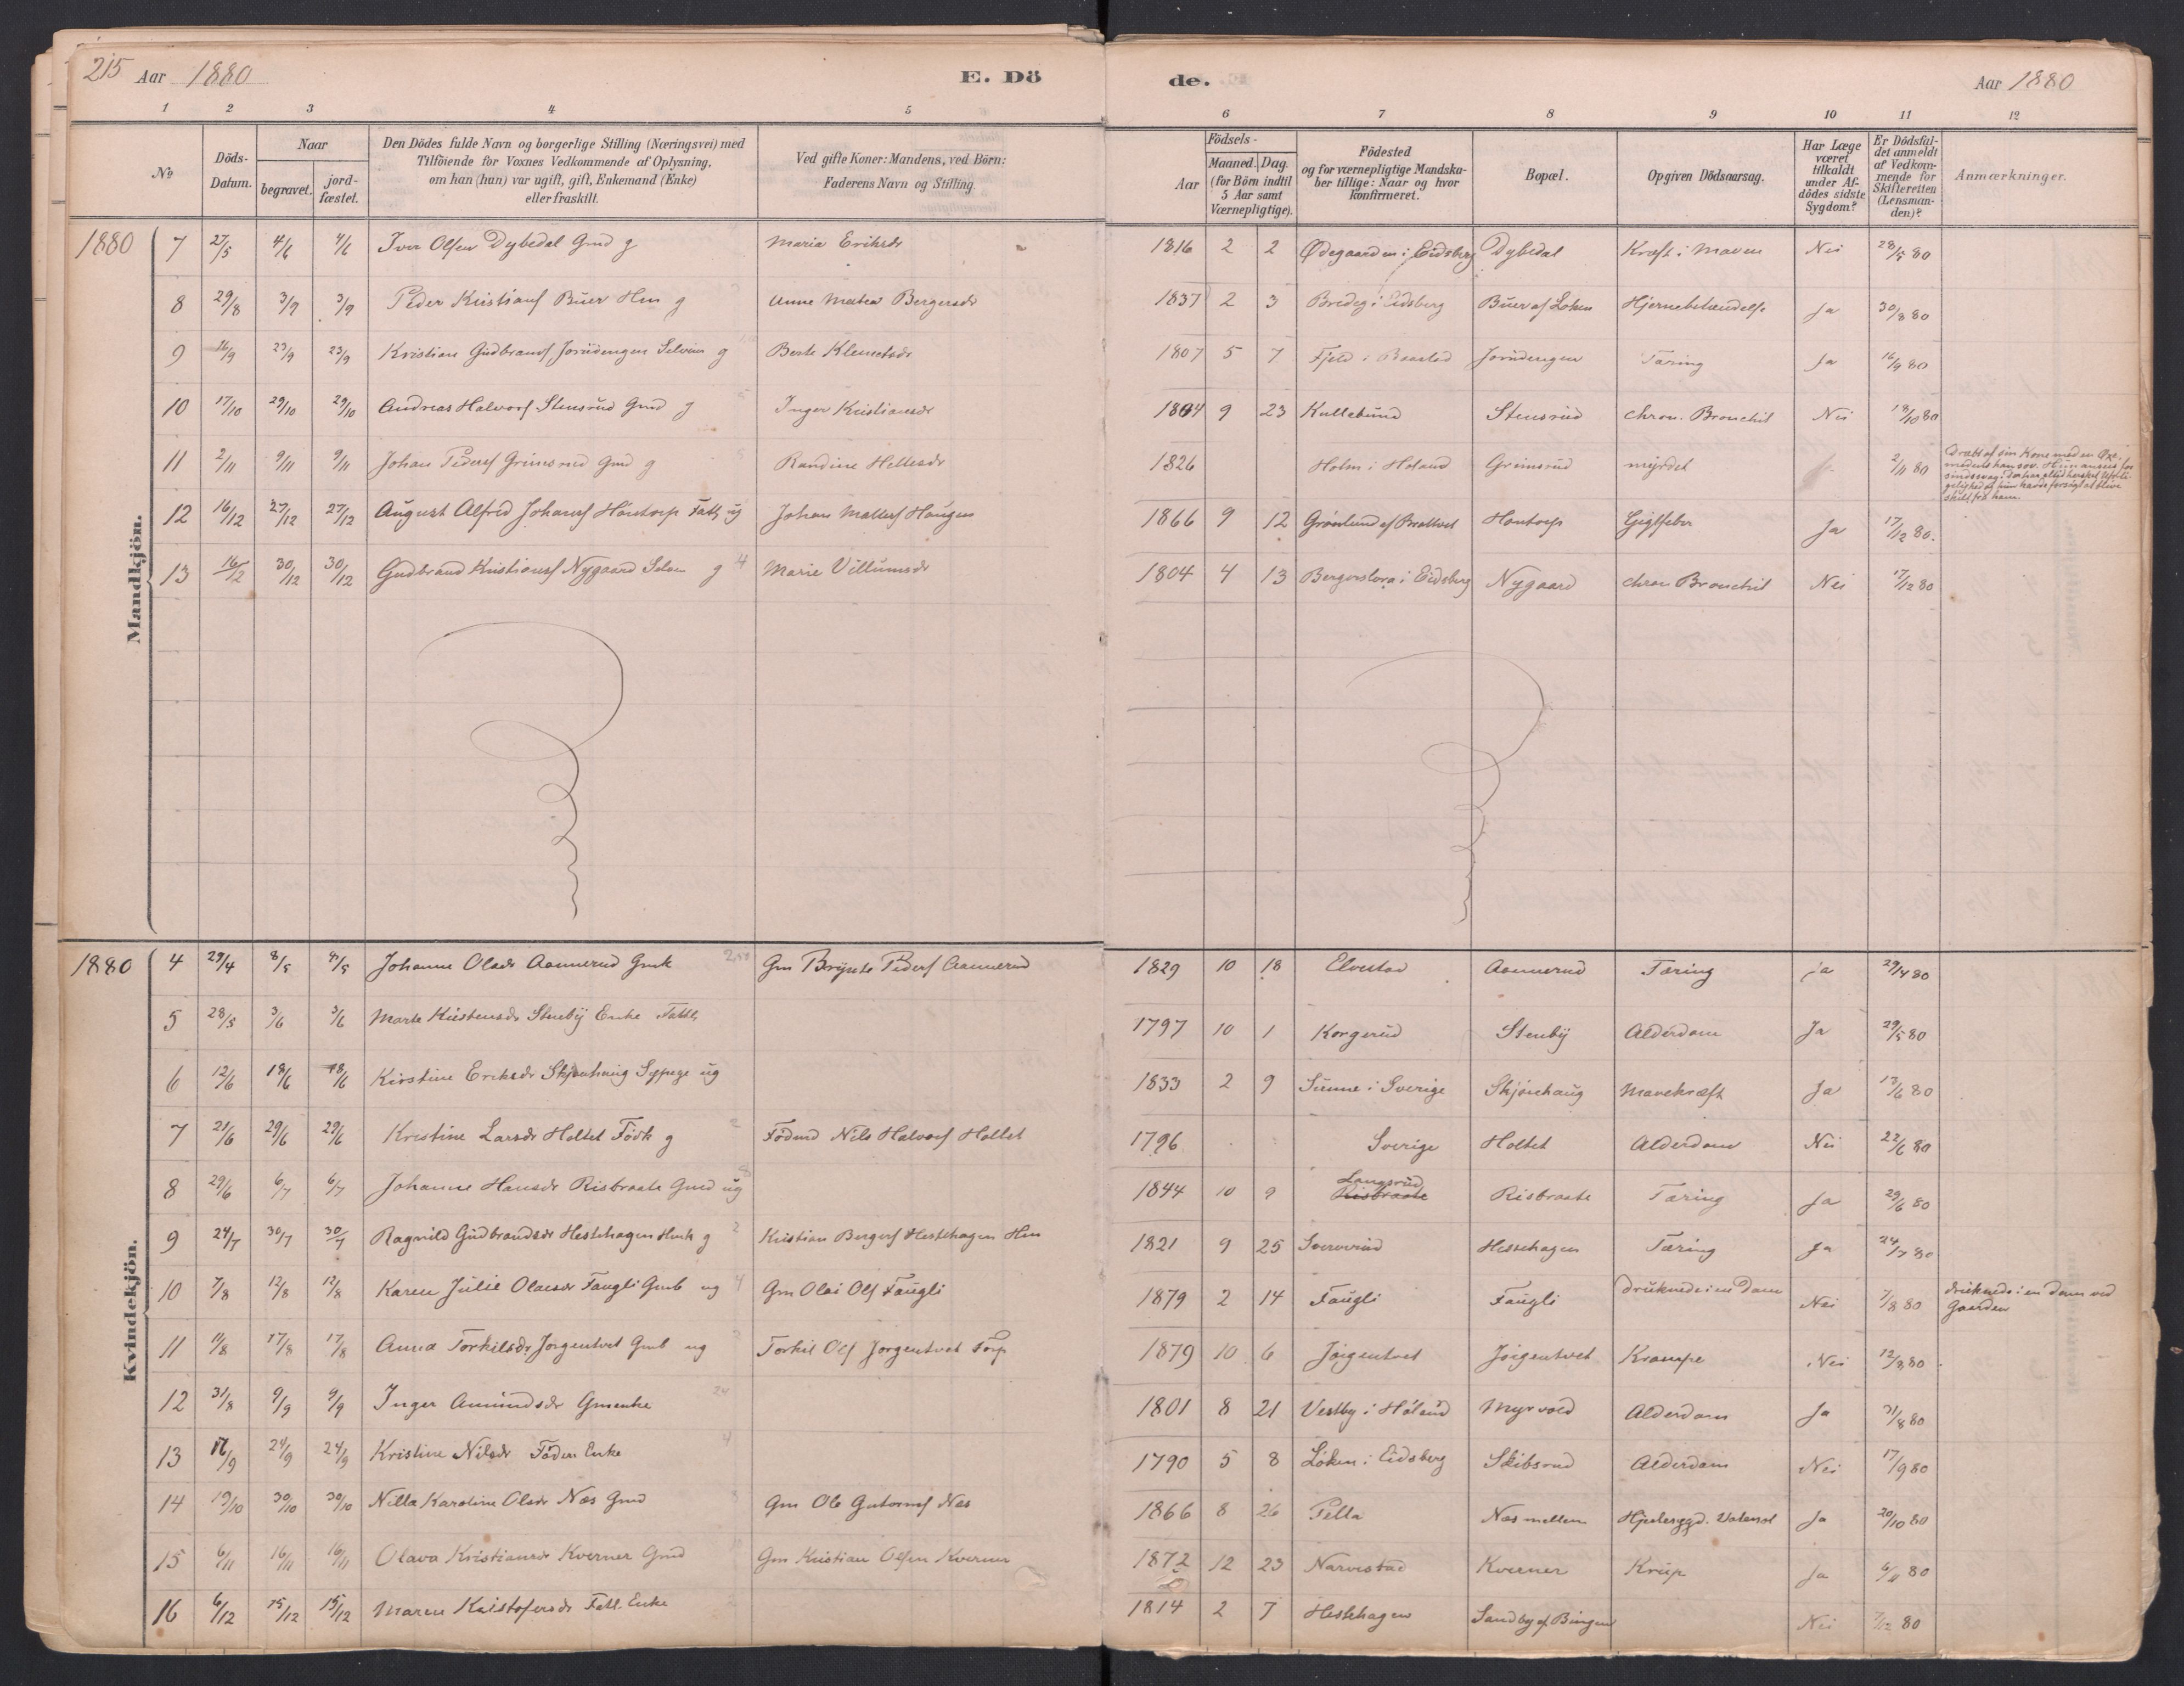 215 Aar 1880 E. Dö de. Aar 1880
1 2 3 4 5 6 7 8 9 10 11 12
No
Döds-
Datum.
Naar
begravet.
jord-
fæstet.
Den Dödes fulde Navn og borgerlige Stilling (Næringsvei) med
Tilföiende for Voxnes Vedkommende af Oplysning,
om han (hun) var ugift, gift, Enkemand (Enke)
eller fraskilt.
Ved gifte Koner: Mandens, ved Börn:
Faderens Navn og Stilling.
Födsels-
Aar
Maaned. Dag.
(for Börn indtil
5 Aar samt
Værnepligtige).
Födested
og for værnepligtige Mandska-
ber tillige: Naar og hvor
konfirmeret.
Bopæl.
Opgiven Dödsaarsag.
Har Læge
været
tilkaldt
under Af-
dödes sidste
Sygdom?
Er Dödsfal-
det anmeldt
af Vedkom-
mende for
Skifteretten
(Lensman-
den)?
Anmærkninger.
Mandkjön.
1880 7 27/5 4/6 4/6 Iver Olsen Dybedal Gmd g Maria Eriksdr 1816 2 2 Ødegaarden i Eidsberg Dybedal Kræft i Maven Nei 28/5 80
8 29/8 3/9 3/9 Peder Kristians Buer Hm g Anne Matea Bergersdr 1837 2 3 i Eidsberg Buer af Løken Hjernebetændelse Ja 30/8 80
9 16/9 23/9 23/9 Kristian Gudbrands Jorudengen Selveier g Berte Klemetsdr 1807 5 7 Fjeld i Baastad Jorudengen Tæring Ja 16/9 80
10 17/10 29/10 29/10 Andreas Halvors Stensrud Gmd g Inger Kristiansdr 1804 9 23 Kullebund Stensrud chron. Bronchit Nei 18/10 80
11 2/11 9/11 9/11 Johan Peders Grimsrud Gmd g Randine Hellesdr 1826 Holm i Høland Grimsrud myrdet 2/11 80
Dræbt af sin Kone med en Øxe,
medens han sov. Hun ansees for
skilt fra ham.
12 16/12 27/12 27/12 August Alfred Johans Hontorp Fattg ug Johan Haugen 1866 9 12 Grønlund af Brattvet Hontorp Gigtfeber Ja 17/12 80.
13 16/12 30/12 30/12 Gudbrand Kristians Nygaard g 4 Marie Villumsdr 1804 4 13 i Eidsberg Nygaard chron Bronchit Nei 17/12 80
Kvindekjön.
1880 4 29/4 8/5 8/5 Johanne Olsdr Aamerud Gmk Gm Brynte Peders Aamerud 1829 10 18 Elvestad Aamerud Tæring ja 29/4 80
5 28/5 3/6 3/6 Marte Kristensdr Stenby Enke Fattl 1797 10 1 Korgerud Stenby Alderdom Ja 29/5 80
6 12/6 18/6 18/6 Kirstine Eriksdr Skjønhaug Sypige ug 1833 2 9 Sunne i Sverige Skjønhaug Mavekræft Ja 13/6 80
7 21/6 29/6 29/6 Kristine Larsdr Holtet Födk g Födmd Nils Halvors Holtet 1796 Sverige Holtet Alderdom Nei 22/6 80
8 29/6 6/7 6/7 Johanne Hansdr Risbraate Gmd ug 1844 10 9 Langsrud Risbraate Risbraate Tæring Ja 29/6 80
9 24/7 30/7 30/7 Ragnild Gudbrandsdr Hestehagen Hmk g Kristian Bergers Hestehagen Hm 1821 9 25 Sververud Hestehagen Tæring Ja 24/7 80
10 7/8 12/8 12/8 Karen Julie Olaesdr Faugli Gmb ug 4 Gm Olai Ols Faugli 1879 2 14 Faugli Faugli druknede i en Dam Nei 7/8 80 druknede i en Dam ved
Gaarden
11 11/8 17/8 17/8 Anna Torkilsdr Jørgentvet Gmb ug Torkil Ols Jørgentvet 1879 10 6 Jørgentvet Jørgentvet Krampe Nei 12/8 80
12 31/8 9/9 9/9 Inger Amundsdr Gmenke 24 1801 8 21 Vestby i Høland Myrvold Alderdom Ja 31/8 80
13 17/9 24/9 24/9 Kristine Nilsdr Föder Enke 4 1790 5 8 Løken i Eidsberg Skibsrud Alderdom Nei 17/9 80
14 19/10 30/10 30/10 Nilla Karoline Olsdr Næs Gmd Gm Ole Gutorms Næs 1866 8 26 Pella Næs mellem Ja 20/10 80
15 6/11 16/11 16/11 Olava Kristiansdr Kverner Gmd Gm Kristian Olsen Kverner 1872 12 23 Narvestad Kverner Krup Ja 6/11 80
16 6/12 15/12 15/12 Maren Kristofersdr Fattl. Enke 1814 2 7 Hestehagen Sandby af Bingen Nei 7/12 80